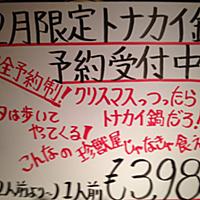 2月限定トナカイ鍋
予約受付中
全予約制!!
クリスマスっつったら
トナカイ鍋だろ!
タは歩いて
やってくる!
こんなの珍獣屋じゃなきゃ食え
2人前より〜1人前¥3,98